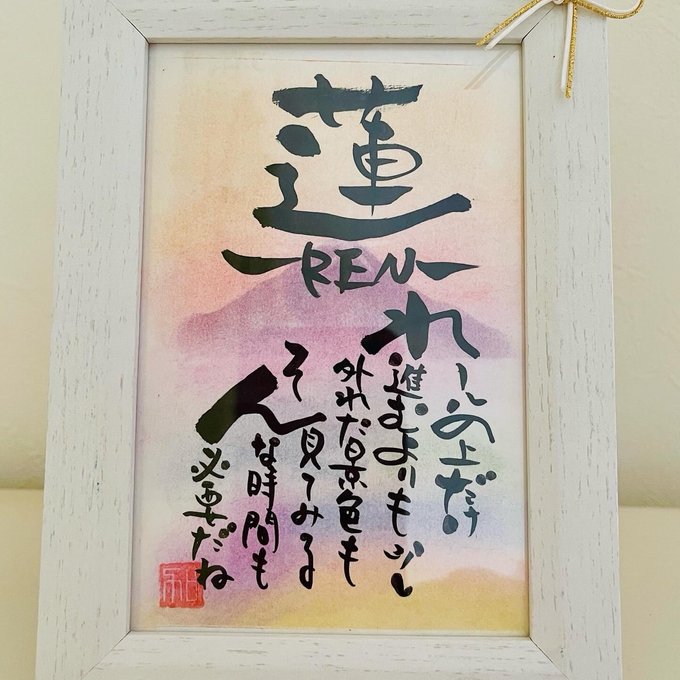 蓮
-REN-
れールの上だけ
進むよりも少し
外れた景色も
見てみる
そんな時間も
必要だね